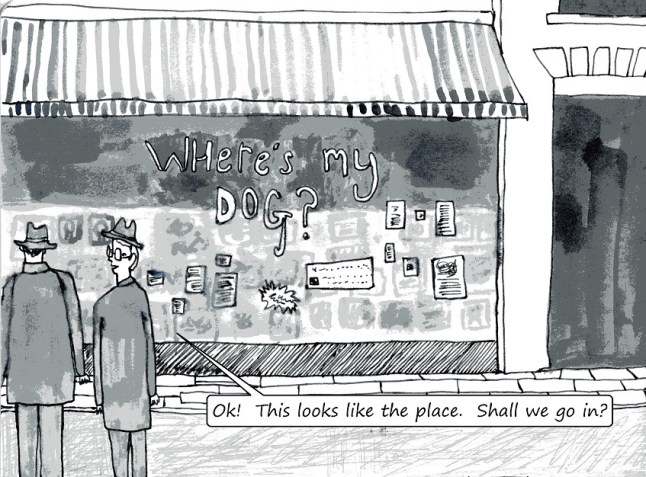 WHere's my
DOG?
Ok! This looks like the place. Shall we go in?